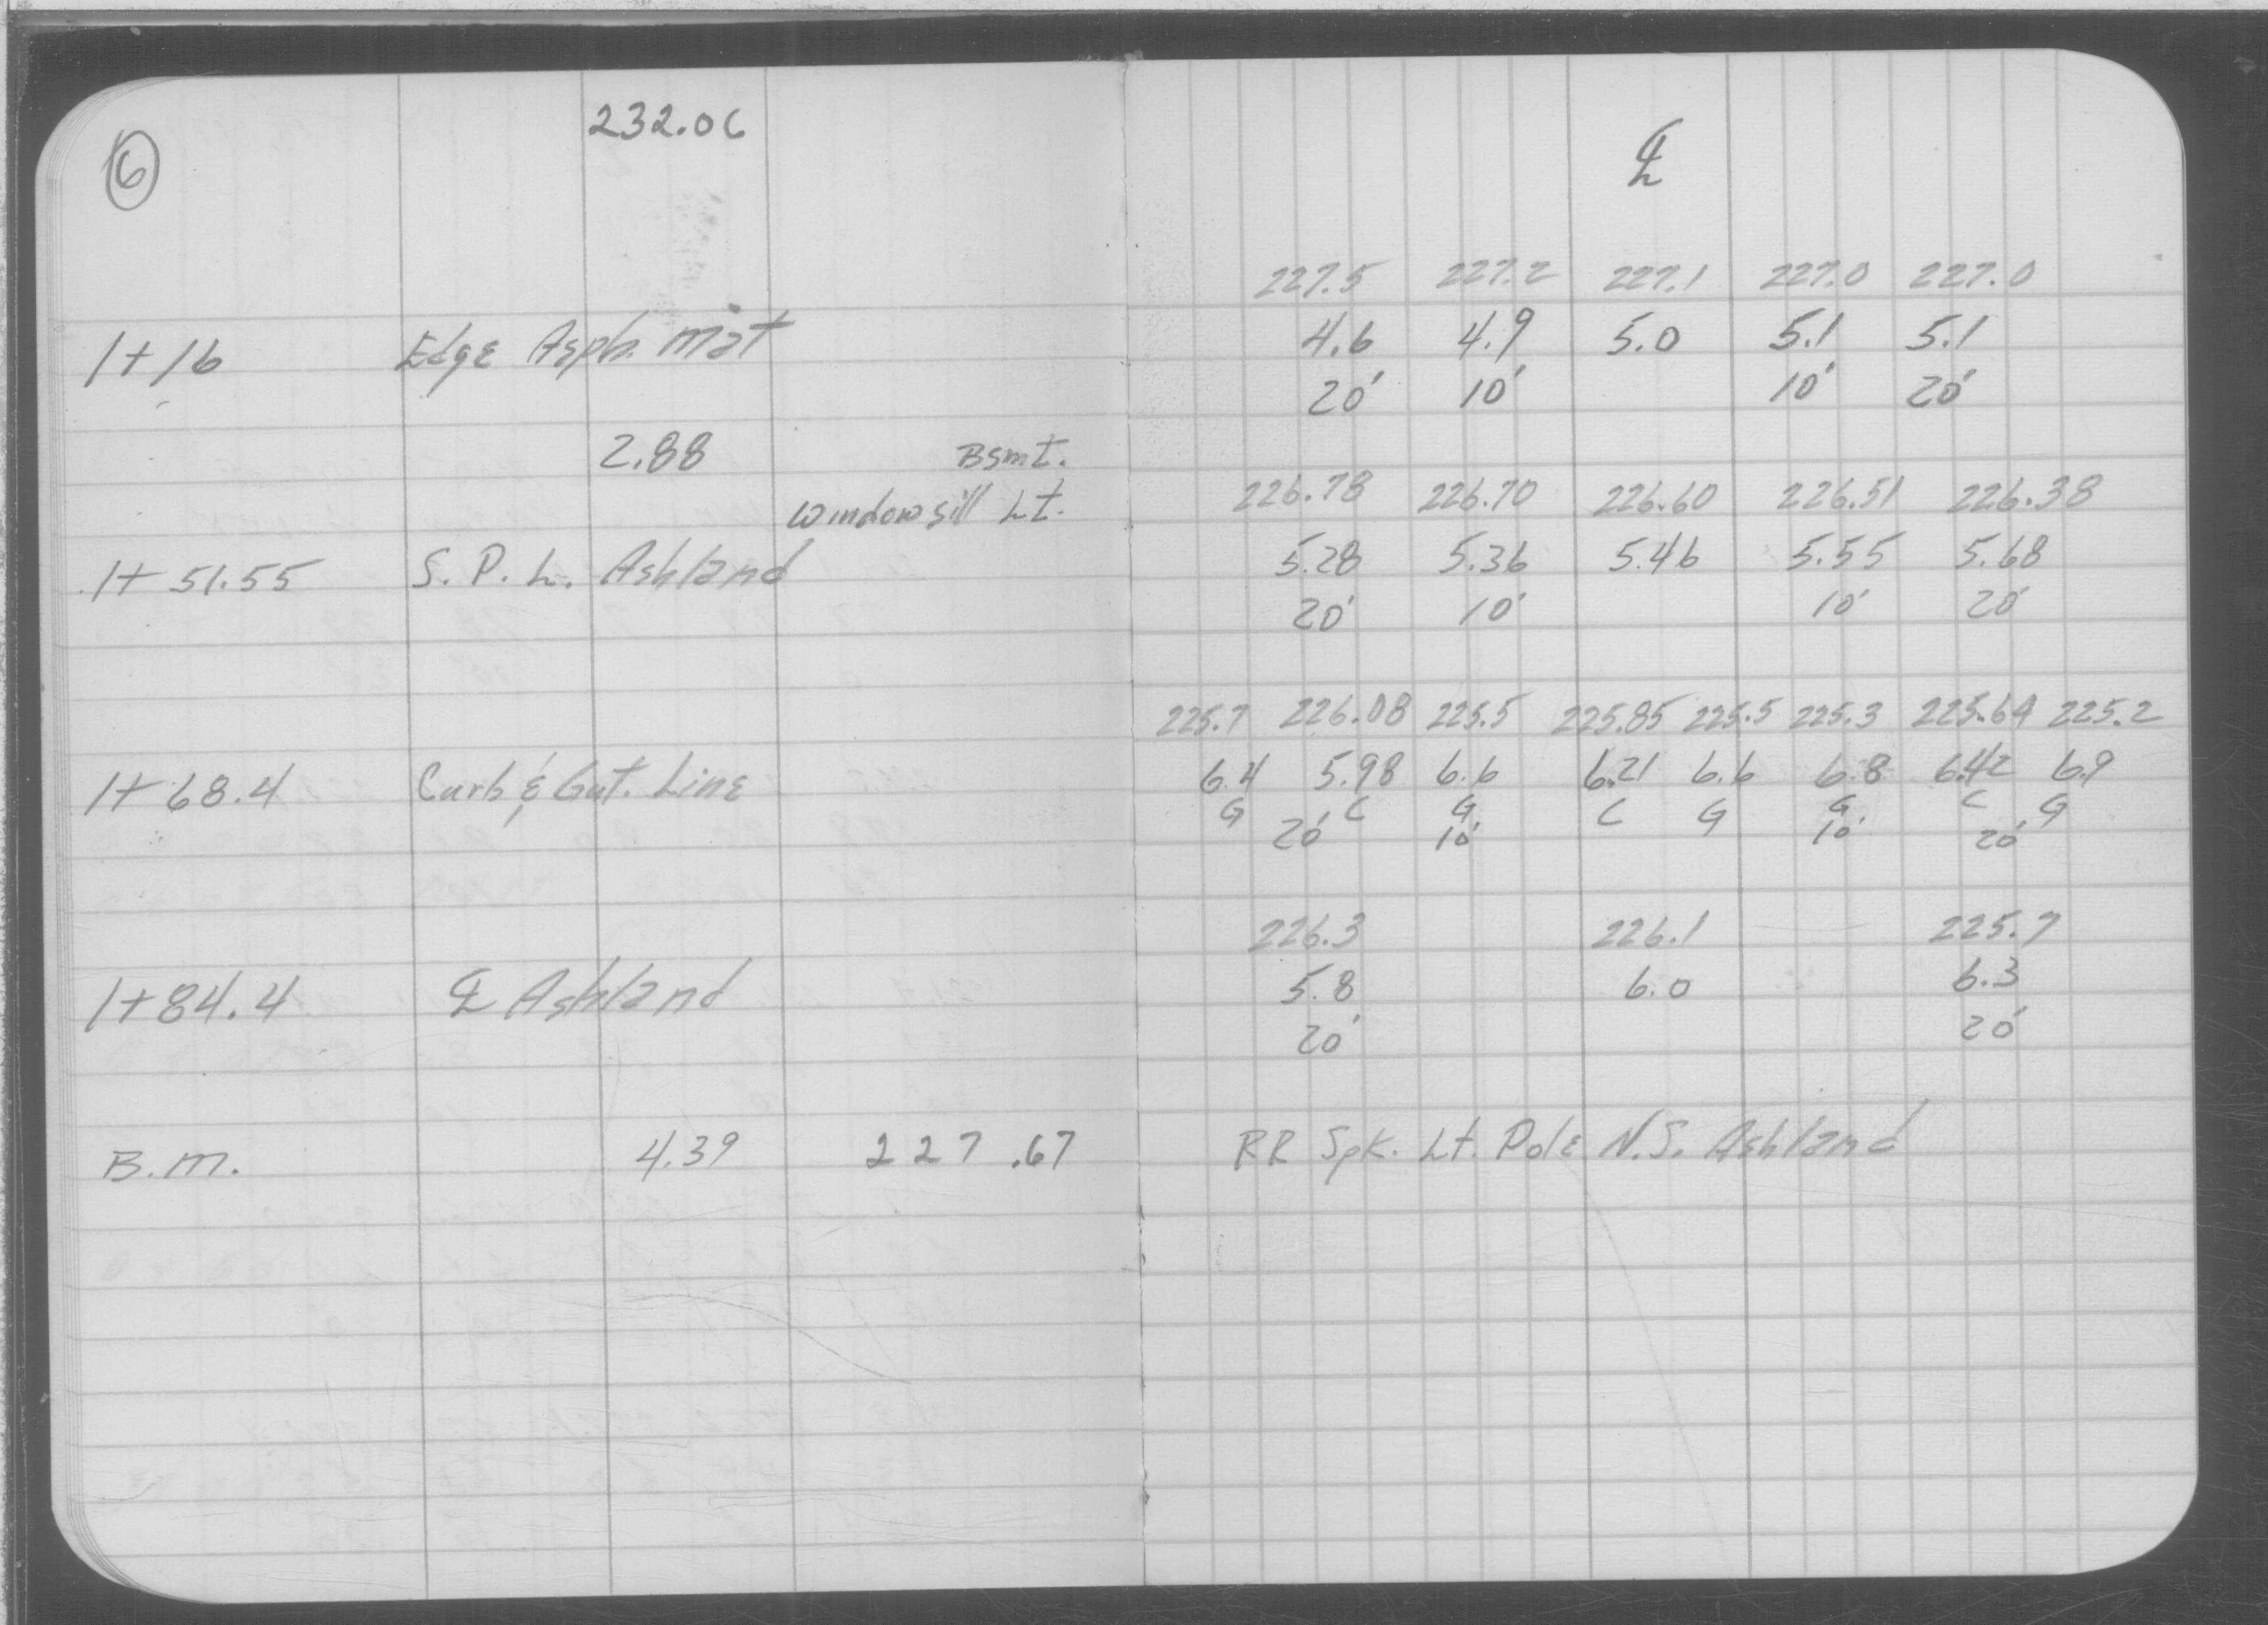 232.06
6 ℄
227.5 227.2 227.1 227.0 227.0
1+16 Edge Asph. Mat 4.6 4.9 5.0 5.1 5.1
20' 10' 10' 20'
2.88 Bsmt.
Windowsill Lt. 226.78 226.70 226.60 226.51 226.38
1+51.55 S.P.L. Ashland 5.28 5.36 5.46 5.55 5.68
20' 10' 10' 20'
225.7 226.08 225.5 225.85 225.5 225.3 225.64 225.2
1+68.4 Curb & Gut. Line 6.4 5.98 6.6 6.21 6.6 6.8 6.42 6.9
G C G C G G C G
20' 10' 10' 20'
226.3 226.1 225.7
1+84.4 ℄ Ashland 5.8 6.0 6.3
20' 20'
B.M. 4.39 227.67 RR Spk. Lt. Pole N.S. Ashland